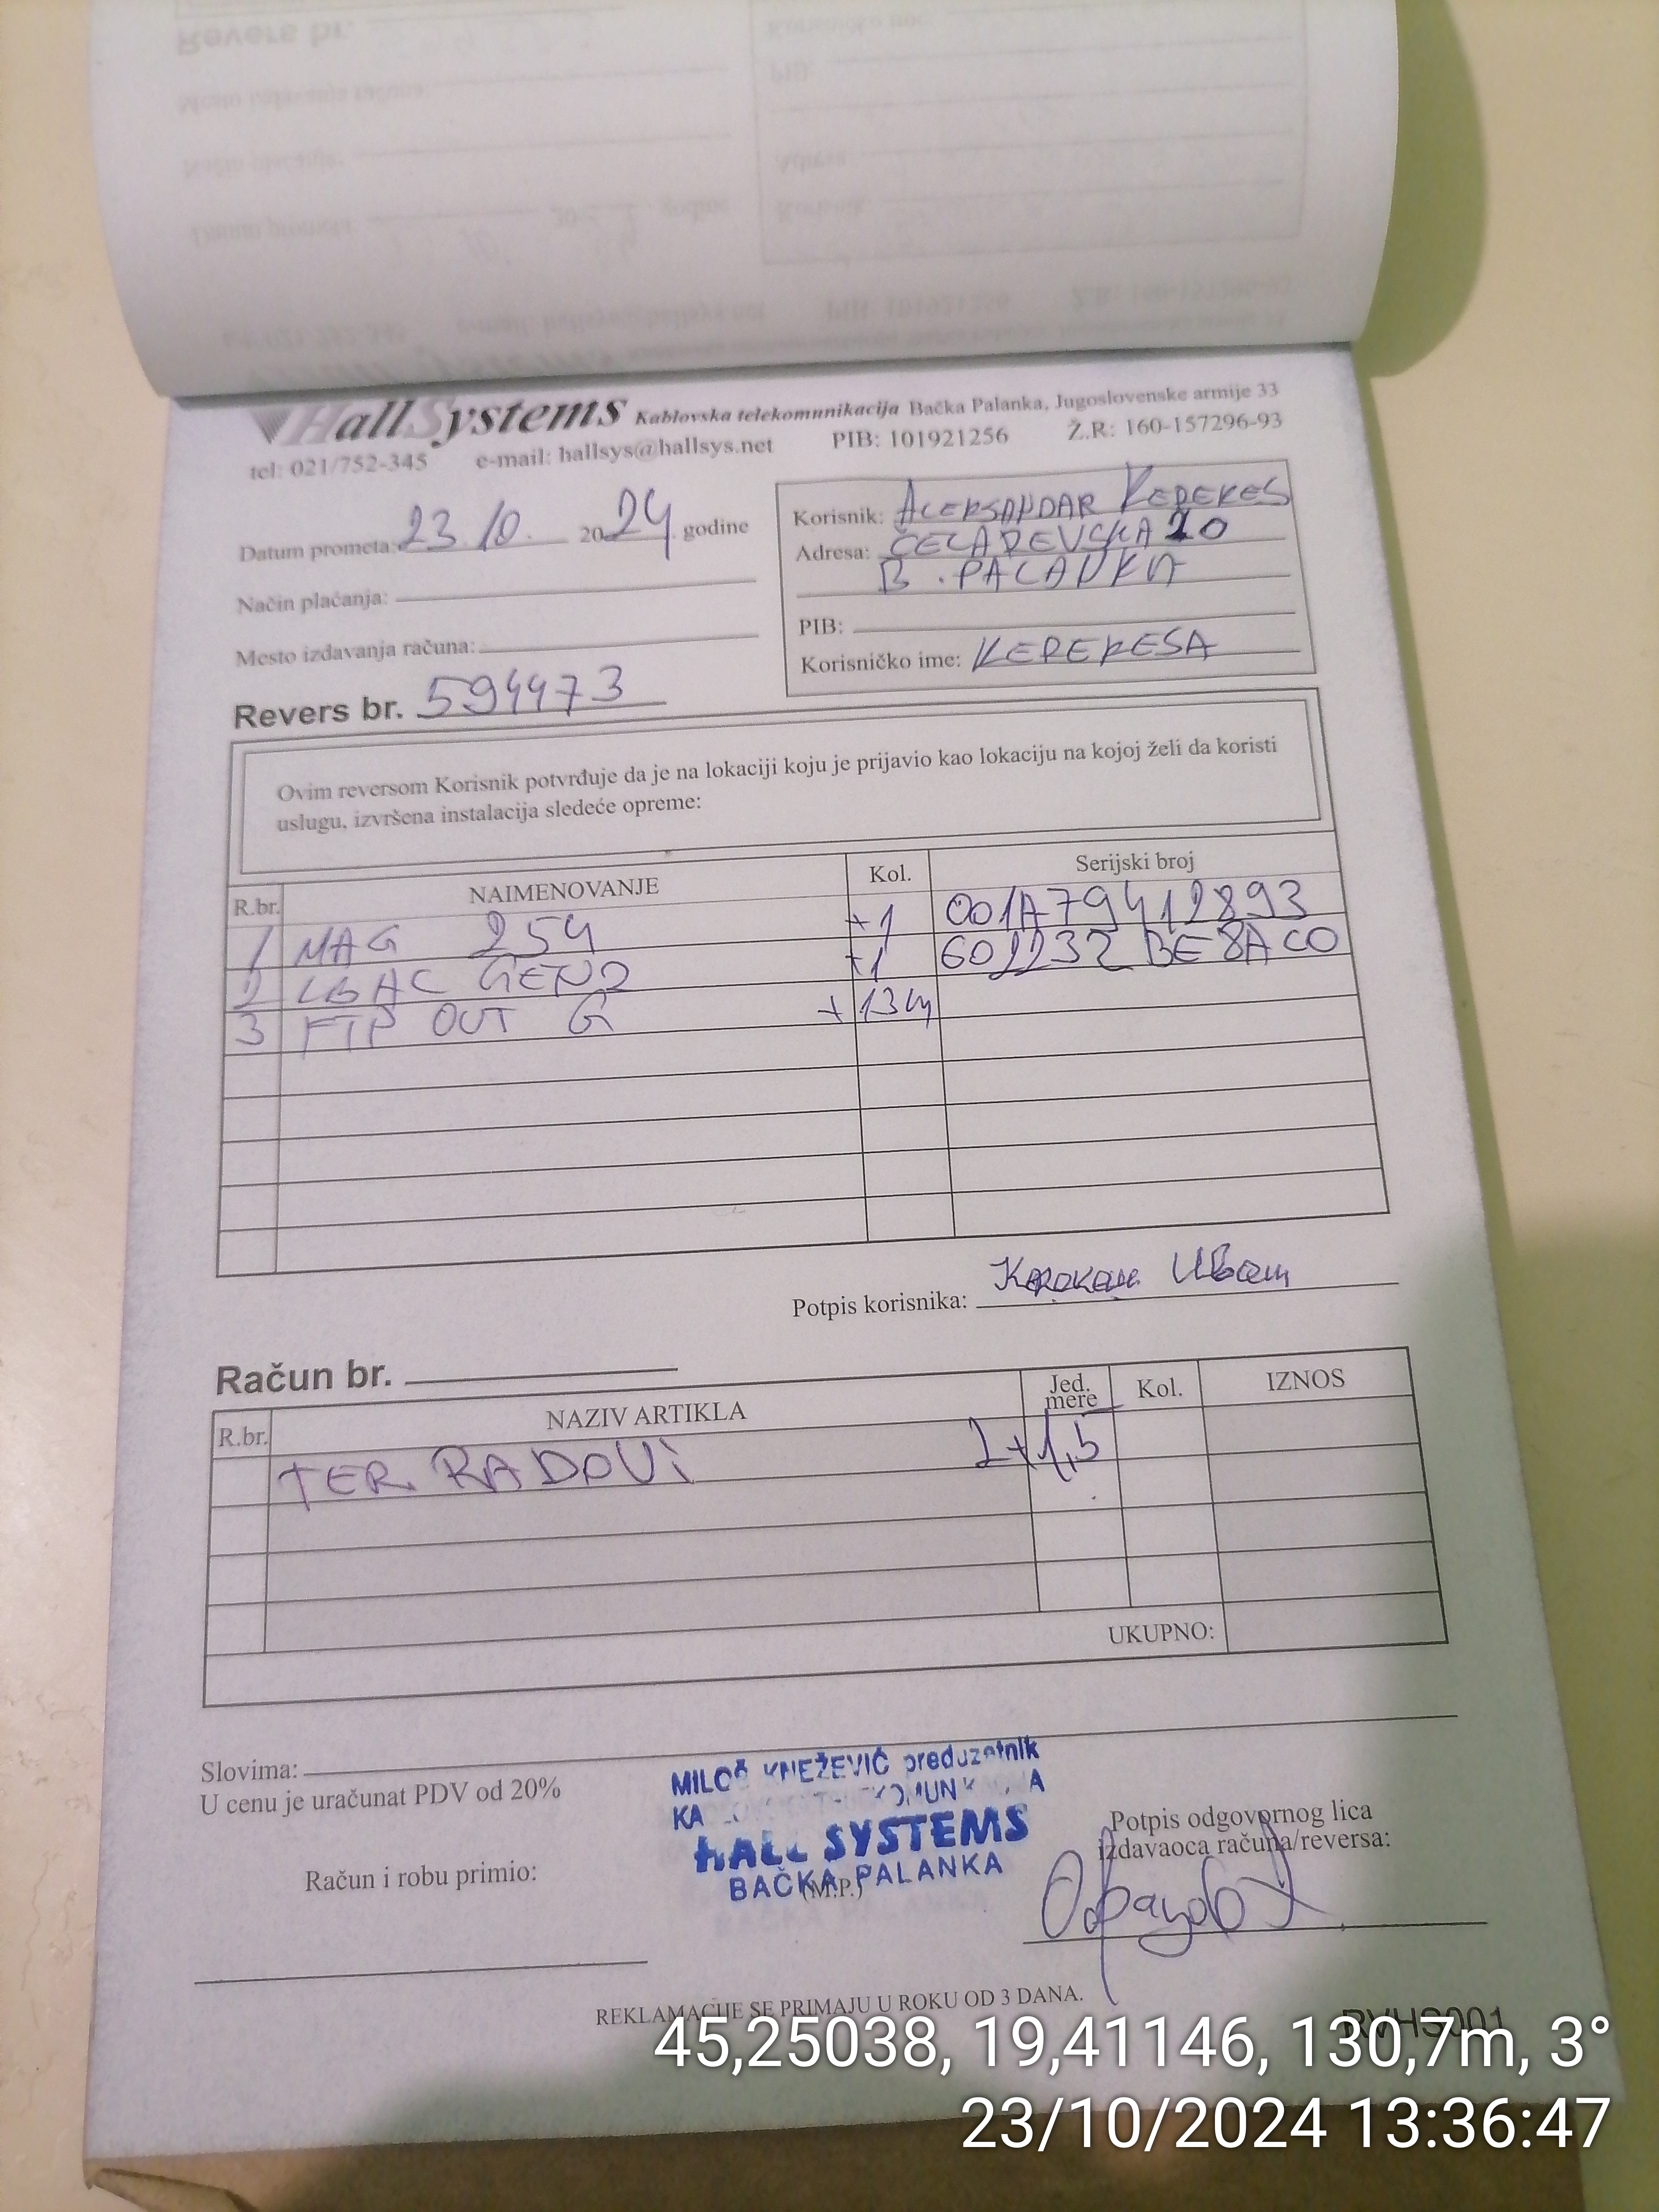 HallSystems Kablovska telekomunikacija Bačka Palanka, Jugoslovenske armije 33
tel: 021/752-345 e-mail: hallsys@hallsys.net PIB: 101921256 Ž.R: 160-157296-93
Datum prometa: 23.10. 2024. godine
Način plaćanja:
Mesto izdavanja računa:
Revers br. 594473
Korisnik: ALEKSANDAR KEREKES
Adresa: ČELAREVSKA 20
B. PALANKA
PIB:
Korisničko ime: KEREKESA
Ovim reversom Korisnik potvrđuje da je na lokaciji koju je prijavio kao lokaciju na kojoj želi da koristi
uslugu, izvršena instalacija sledeće opreme:
R.br. NAIMENOVANJE Kol. Serijski broj
1 MAG 254 +1 001A79412893
2 LBAC GEN2 +1 602232BE8AC0
3 FTP OUT G +13m
Potpis korisnika:
Račun br.
R.br. NAZIV ARTIKLA Jed. mere Kol. IZNOS
TER. RADOVI 2+1,5
UKUPNO:
Slovima:
U cenu je uračunat PDV od 20%
Računi robu primio:
MILOŠ KNEŽEVIĆ preduzetnik
HALL SYSTEMS
BAČKA PALANKA
(M.P.)
Potpis odgovornog lica
izdavaoca računa/reversa:
REKLAMACIJE SE PRIMAJU U ROKU OD 3 DANA.
RVHS001
45,25038, 19,41146, 130,7m, 3°
23/10/2024 13:36:47